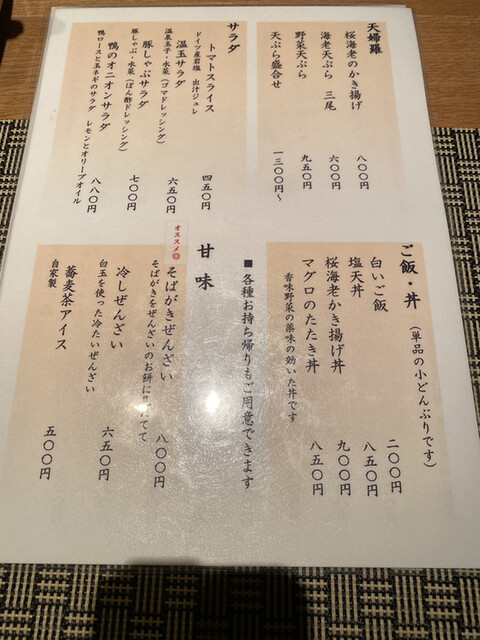 天婦羅
桜海老のかき揚げ 八〇〇円
海老天ぷら 三尾 六〇〇円
野菜天ぷら 九五〇円
天ぷら盛合せ 一三〇〇円〜
サラダ
トマトスライス 四五〇円
ドイツ産岩塩 出汁ジュレ
温玉サラダ 六五〇円
温泉玉子・水菜(ゴマドレッシング)
豚しゃぶサラダ 七〇〇円
豚しゃぶ・水菜(ぽん酢ドレッシング)
鴨のオニオンサラダ 八八〇円
鴨ロースと玉ネギのサラダ レモンとオリーブオイル
ご飯・丼(単品の小どんぶりです)
白いご飯 二〇〇円
塩天丼 八五〇円
桜海老かき揚げ丼 九〇〇円
マグロのたたき丼 八五〇円
香味野菜の薬味の効いた丼です
■各種お持ち帰りもご用意できます
甘味
オススメ
そばがきぜんざい 八〇〇円
そばがきをぜんざいのお餅に見たてて
冷しぜんざい 六五〇円
白玉を使った冷たいぜんざい
蕎麦茶アイス 五〇〇円
自家製